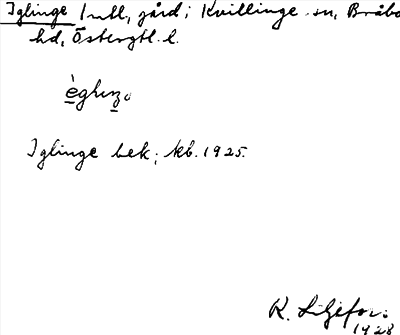 Iglinge 1 mtl, gård; Kvillinge sn, Bråbo
hd, Östergtl. l.
Iglinge bek; kb. 1925.
R. Liljefors
1928